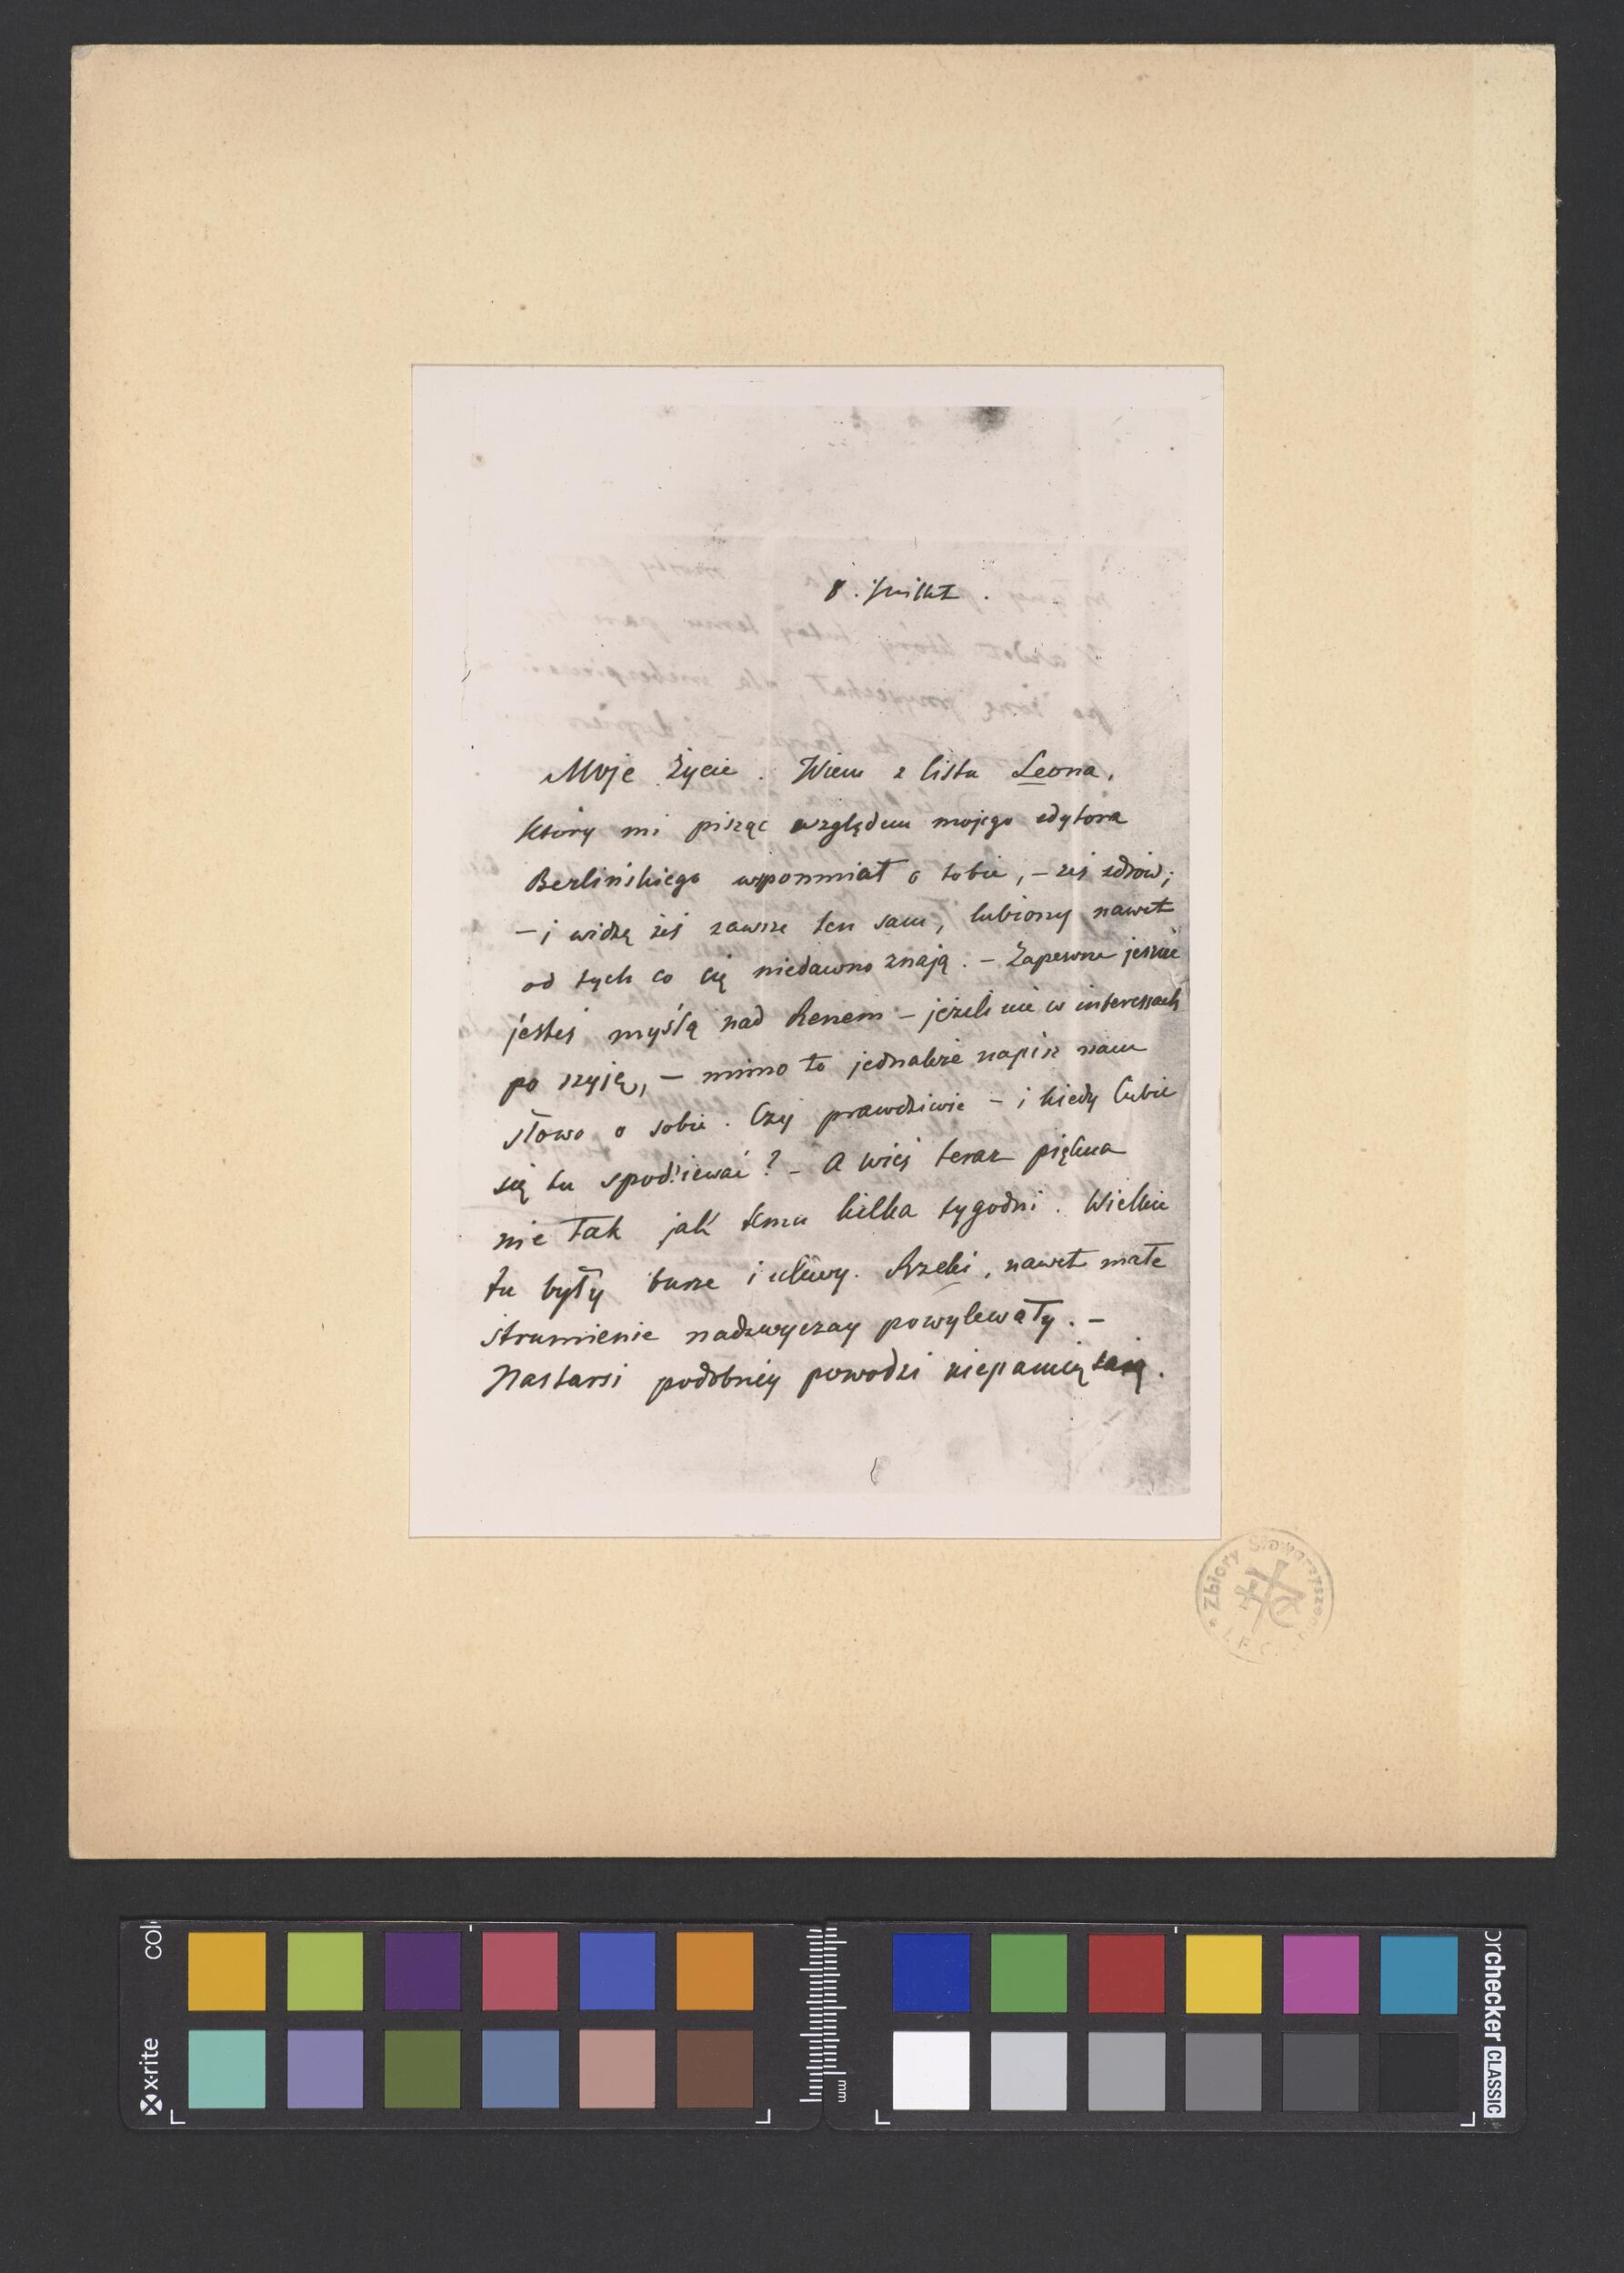 8. Juillet.
Moje Życie. Wiem z listu Leona,
który mi pisząc względem mojego edytora
Berlińskiego wspomniał o tobie, – żeś zdrów;
– i widzę żeś zawsze ten sam, lubiony nawet
od tych co cię niedawno znają. – Zapewne jeszcze
jesteś myślą nad Renem – jeżeli nie w interessach
po szyję, – mimo to jednakże napisz nam
słowo o sobie. Czy prawdziwie – i kiedy Ciebie
się tu spodziewać? – A wieś teraz piękna
nie tak jak temu kilka tygodni. Wielkie
tu były burze i ulewy. Rzeki, nawet małe
strumienie nadzwyczay powylewały. –
Nastarsi podobney powodzi niepamiętają.
Zbiory Stowarzyszenia
colo
x-rite
mm
orchecker CLASSIC